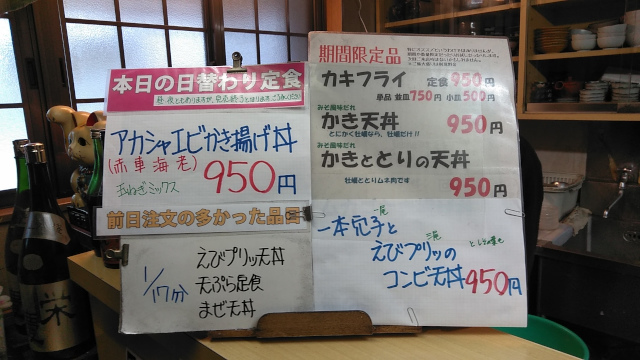 本日の日替わり定食
アカシャエビかき揚げ丼
(赤車海老)
玉ねぎミックス
950円
前日注文の多かった品目
1/17分
えびプリッ天丼
天ぷら定食
まぜ天丼
期間限定品
カキフライ 定食950円
単品 並皿750円 小皿500円
みそ風味だれ
かき天丼 950円
とにかく牡蠣なら、牡蠣だけ!!
みそ風味だれ
かきととりの天丼
牡蠣ととりムネ肉です
950円
一本穴子と
えびプリッの
コンビ天丼950円
栄